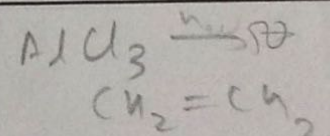 AlCl₃ →
CH₂ = CH₂